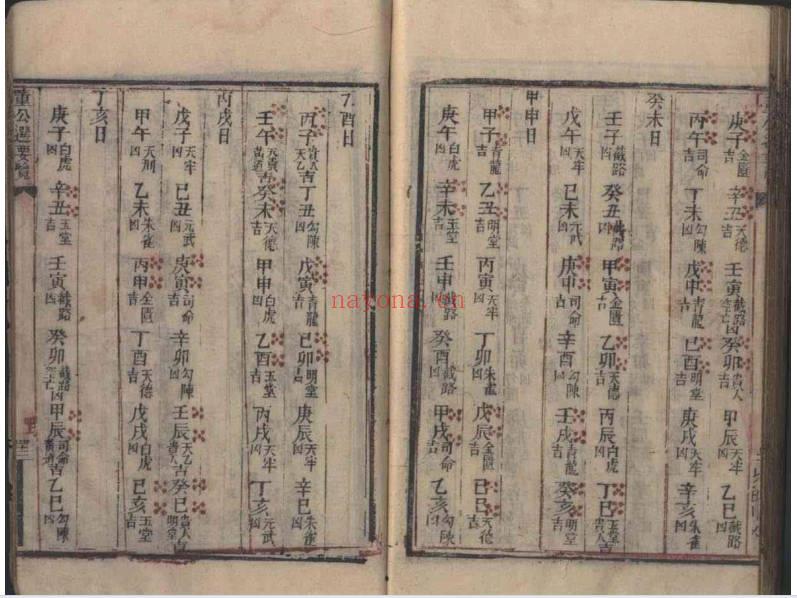 庚子金匱吉 辛丑天德吉 壬寅截路空亡凶 癸卯貴人吉 甲辰天牢凶 乙巳截路凶
丙午司命吉 丁未勾陳凶 戊申青龍吉 己酉貴人吉 庚戌天牢凶 辛亥朱雀凶
癸未日
壬子截路凶 癸丑凶 甲寅金匱吉 乙卯天德吉 丙辰白虎凶 丁巳玉堂貴人吉
戊午天牢凶 己未元武凶 庚申司命吉 辛酉勾陳凶 壬戌青龍吉 癸亥明堂吉
甲申日
甲子青龍吉 乙丑明堂吉 丙寅天牢凶 丁卯朱雀凶 戊辰金匱吉 己巳天德吉
庚午白虎凶 辛未玉堂吉 壬申截路凶 癸酉截路凶 甲戌司命吉 乙亥勾陳凶
乙酉日
丙子貴人天乙吉 丁丑勾陳凶 戊寅青龍吉 己卯明堂吉 庚辰天牢凶 辛巳朱雀凶
壬午天貴黃道吉 癸未天德吉 甲申白虎凶 乙酉玉堂吉 丙戌天牢凶 丁亥元武凶
丙戌日
戊子天牢凶 己丑元武凶 庚寅司命吉 辛卯勾陳凶 壬辰天乙貴人吉 癸巳貴人明堂吉
甲午天刑凶 乙未朱雀凶 丙申金匱吉 丁酉天德吉 戊戌白虎凶 己亥玉堂吉
丁亥日
庚子白虎凶 辛丑玉堂吉 壬寅截路凶 癸卯截路空亡凶 甲辰司命黃道吉 乙巳勾陳凶
董公選要覽
nayona.cn